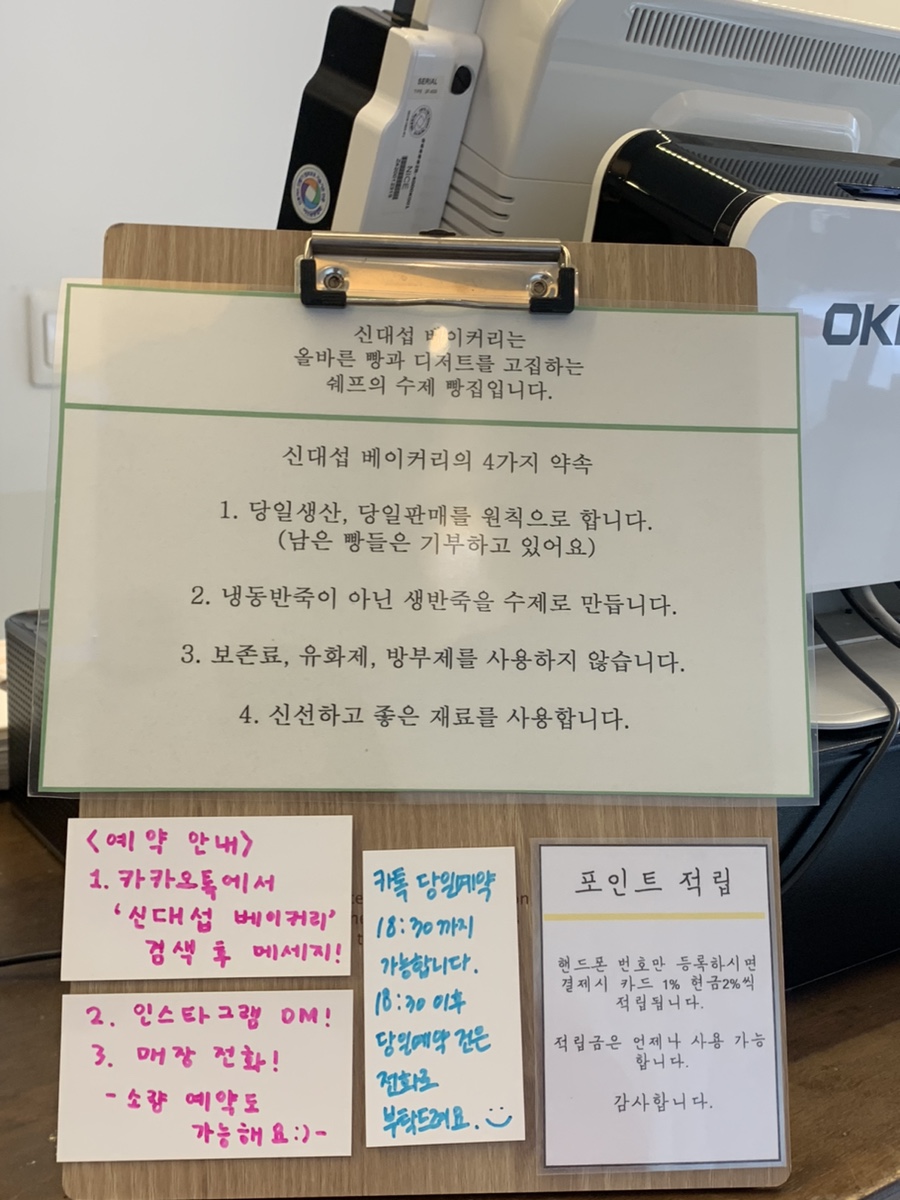 SERIAL
NICE
OKI
신대섭 베이커리는
올바른 빵과 디저트를 고집하는
쉐프의 수제 빵집입니다.
신대섭 베이커리의 4가지 약속
1. 당일생산, 당일판매를 원칙으로 합니다.
(남은 빵들은 기부하고 있어요)
2. 냉동반죽이 아닌 생반죽을 수제로 만듭니다.
3. 보존료, 유화제, 방부제를 사용하지 않습니다.
4. 신선하고 좋은 재료를 사용합니다.
<예약 안내>
1. 카카오톡에서
'신대섭 베이커리'
검색 후 메세지!
2. 인스타그램 DM!
3. 매장 전화!
- 소량 예약도
가능해요:)-
카톡 당일예약
18:30까지
가능합니다.
18:30 이후
당일예약 건은
전화로
부탁드려요.
포인트 적립
핸드폰 번호만 등록하시면
결제시 카드 1% 현금2%씩
적립됩니다.
적립금은 언제나 사용 가능
합니다.
감사합니다.